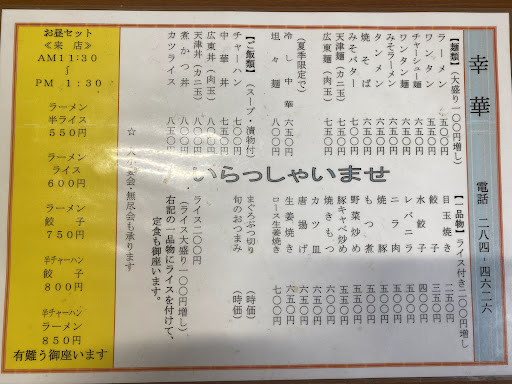 幸華
電話 二八四-四六二六
【麺類】(大盛り一〇〇円増し)
ラーメン 五〇〇円
ワンタン 五五〇円
チャーシュー麺 六五〇円
ワンタン麺 六五〇円
みそラーメン 六五〇円
タンメン 六五〇円
焼そば 六五〇円
みそバター
天津麺(カニ玉) 七五〇円
広東麺(肉玉) 七五〇円
(夏季限定で)
冷し中華 六五〇円
坦々麺 八〇〇円
【ご飯類】(スープ・漬物付)
チャーハン 七〇〇円
中華丼 七五〇円
広東丼(肉玉) 七五〇円
天津丼(カニ玉) 七五〇円
煮かつ丼 八五〇円
カツライス 八五〇円
いらっしゃいませ
【一品物】ライス付き二〇〇円増し
目玉焼き 二五〇円
餃子 三五〇円
水餃子 四〇〇円
レバニラ 五〇〇円
ニラ肉 五〇〇円
焼豚
もつ煮
野菜炒め 五五〇円
豚キャベ炒め 五五〇円
焼きもつ 五五〇円
カツ皿 六五〇円
唐揚げ 六五〇円
生姜焼き 六五〇円
ロース生姜焼き 七〇〇円
まぐろぶつ切り (時価)
旬のおつまみ (時価)
ライス二〇〇円
(ライス大盛り一〇〇円増し)
右記の一品物にライスを付けて、
定食も御座います。
☆ 小宴会・無尽会も承ります
お昼セット
≪来 店≫
AM11:30
~
PM 1:30
ラーメン
半ライス
550円
ラーメン
ライス
600円
ラーメン
餃 子
750円
半チャーハン
餃 子
800円
半チャーハン
ラーメン
850円
有難う御座います